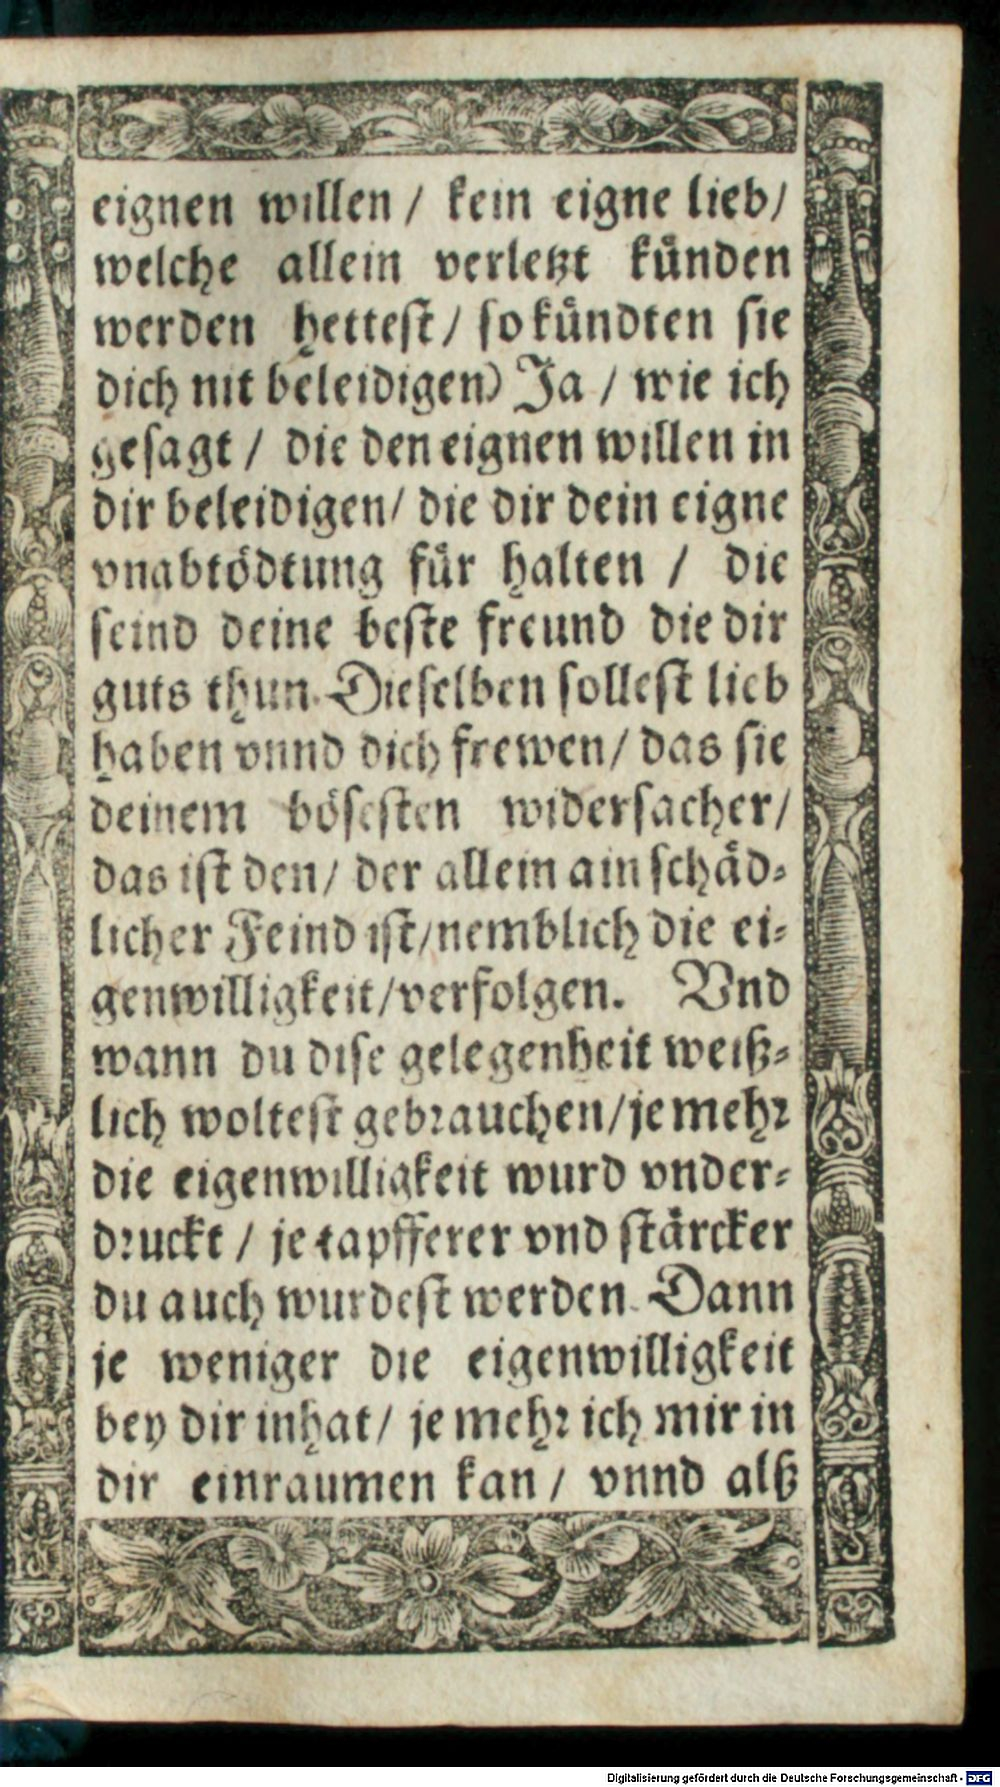 eignen willen / kein eigne lieb/
welche allein verletzt künden
werden hettest / so kündten sie
dich nit beleidigen) Ja / wie ich
gesagt / die den eignen willen in
dir beleidigen/ die dir dein eigne
vnabtödtung für halten / die
seind deine beste freund die dir
guts thun. Dieselben sollest lieb
haben vnnd dich frewen/ das sie
deinem bösesten widersacher/
das ist den/ der allein ain schäd-
licher Feind ist/nemblich die ei-
genwilligkeit/verfolgen. Vnd
wann du dise gelegenheit weiß-
lich woltest gebrauchen/je mehr
die eigenwilligkeit wurd vnder-
druckt / je tapfferer vnd stärcker
du auch wurdest werden. Dann
je weniger die eigenwilligkeit
bey dir inhat/ je mehr ich mir in
dir einraumen kan / vnnd alß
Digitalisierung gefördert durch die Deutsche Forschungsgemeinschaft - DFG